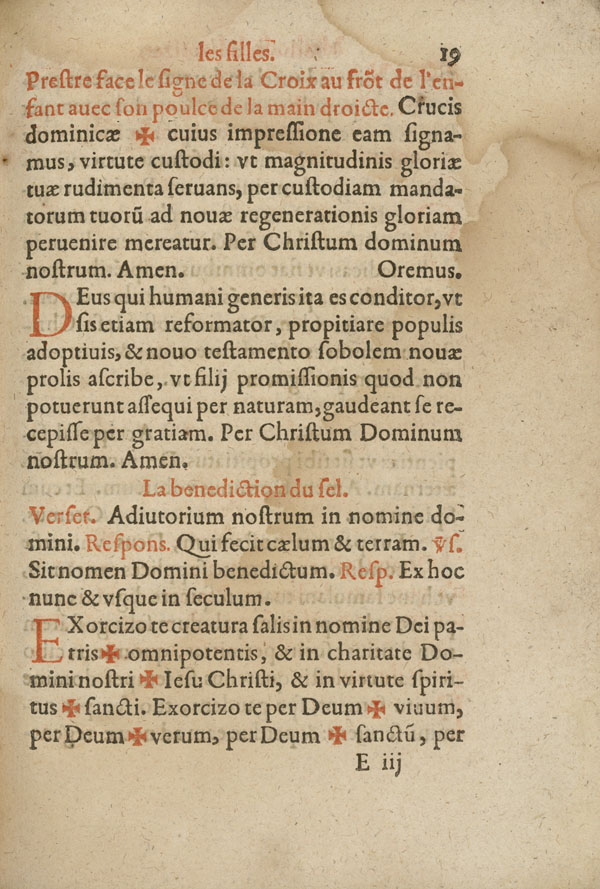 les filles. 19
Prestre face le signe de la Croix au frõt de l'en-
fant auec son poulce de la main droicte. Crucis
dominicæ ✠ cuius impressione eam signa-
mus, virtute custodi: vt magnitudinis gloriæ
tuæ rudimenta seruans, per custodiam manda-
torum tuorũ ad nouæ regenerationis gloriam
peruenire mereatur. Per Christum dominum
nostrum. Amen. Oremus.
DEus qui humani generis ita es conditor, vt
sis etiam reformator, propitiare populis
adoptiuis, & nouo testamento sobolem nouæ
prolis ascribe, vt filij promissionis quod non
potuerunt assequi per naturam, gaudeant se re-
cepisse per gratiam. Per Christum Dominum
nostrum. Amen.
La benediction du sel.
Verset. Adiutorium nostrum in nomine do-
mini. Respons. Qui fecit cælum & terram. ℣s.
Sit nomen Domini benedictum. Resp. Ex hoc
nunc & vsque in seculum.
EXorcizo te creatura salis in nomine Dei pa-
tris ✠ omnipotentis, & in charitate Do-
mini nostri ✠ Iesu Christi, & in virtute spiri-
tus ✠ sancti. Exorcizo te per Deum ✠ viuum,
per Deum ✠ verum, per Deum ✠ sanctũ, per
E iij